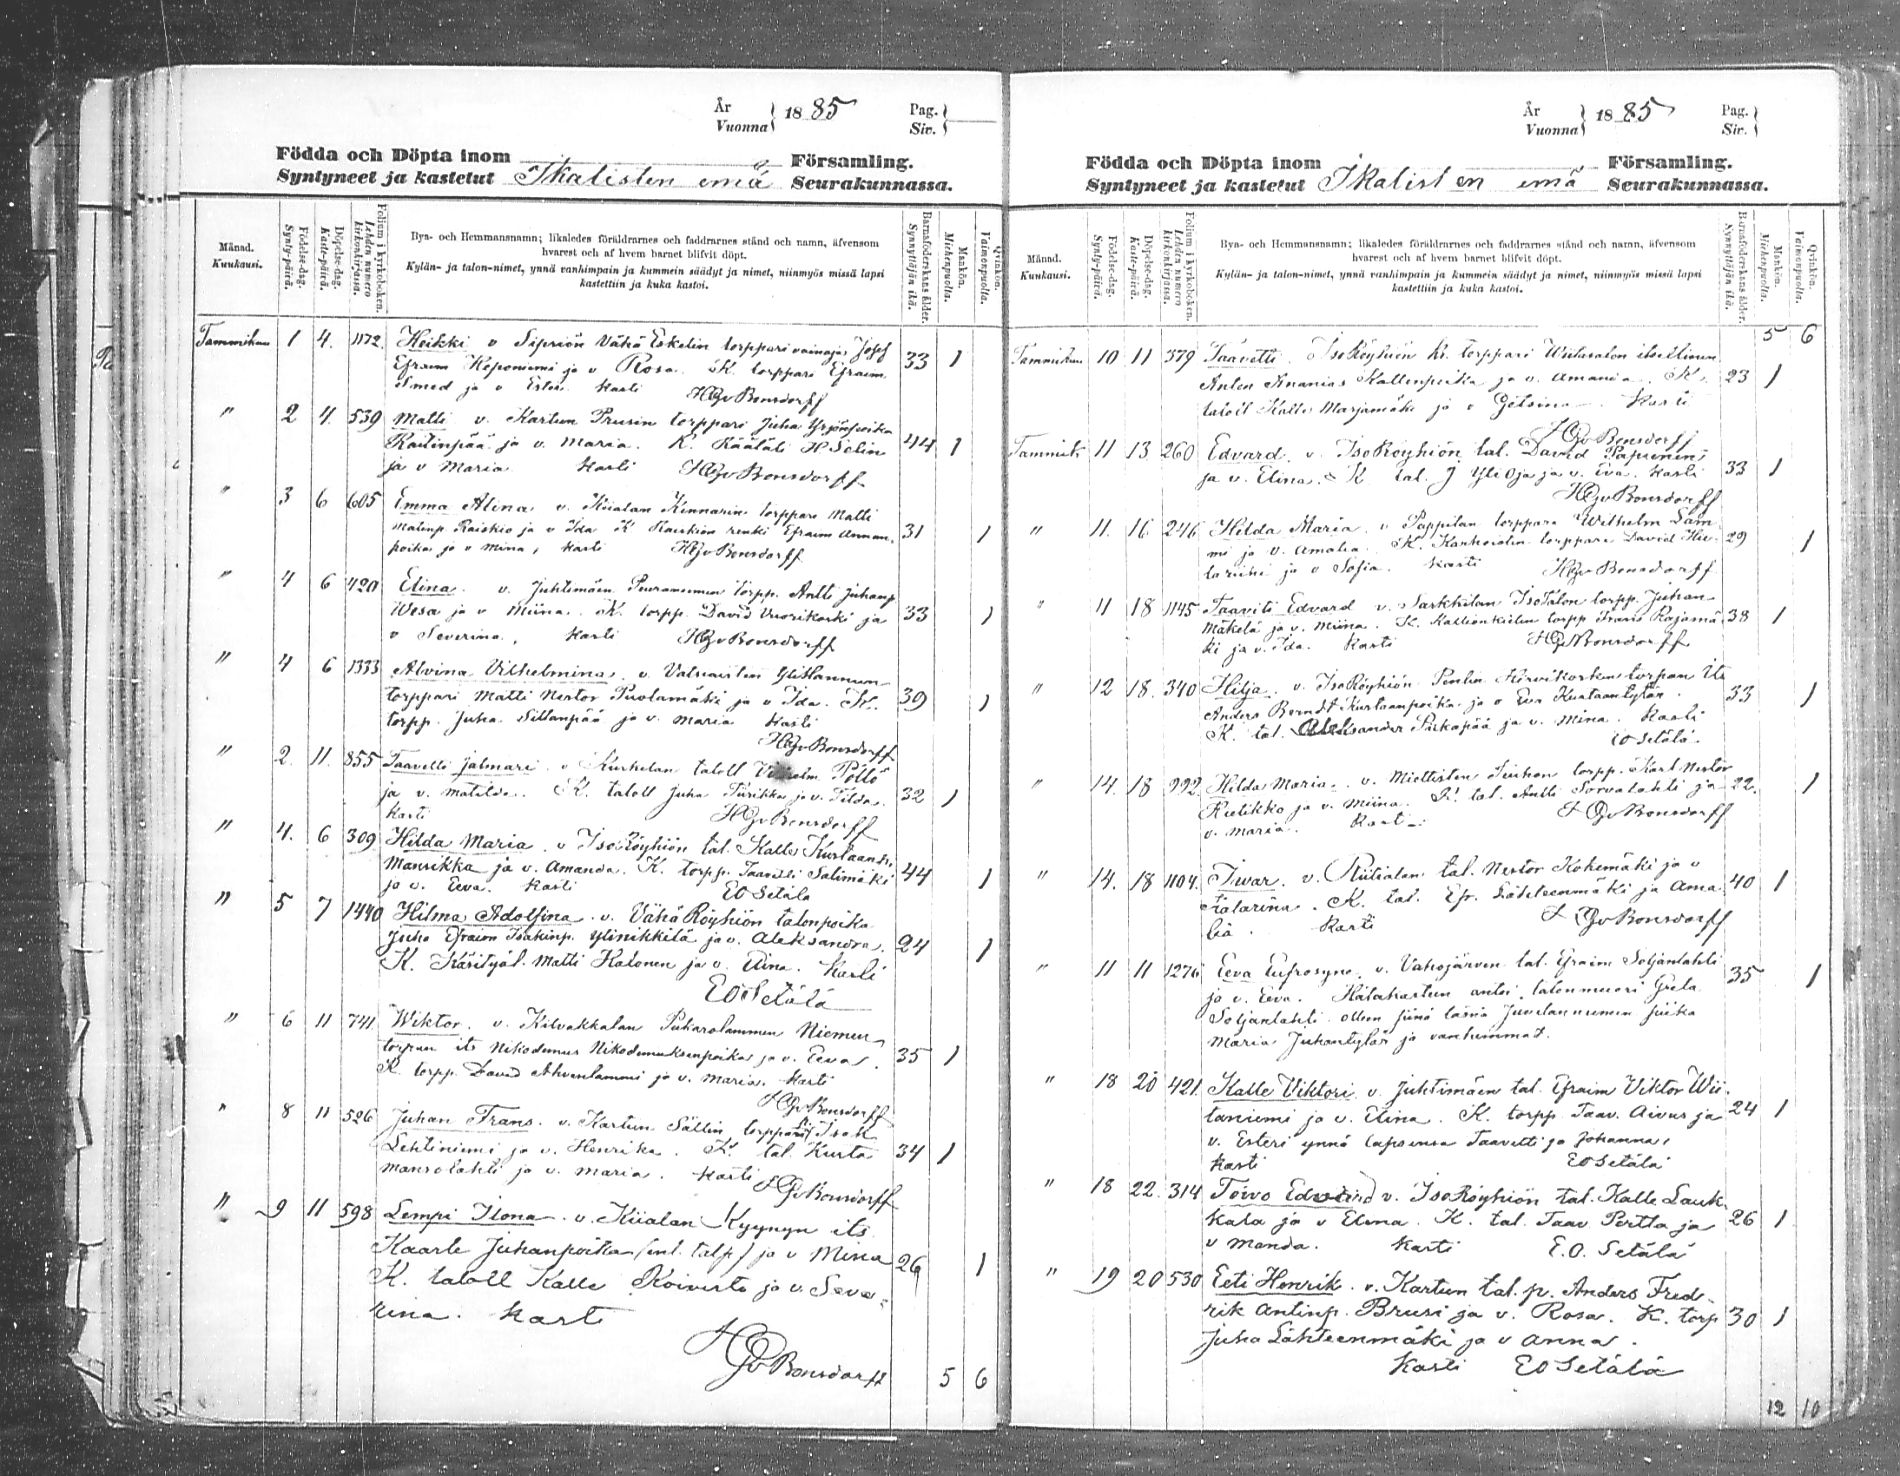 År
Vuonna 1885 Pag.
Siv.
Födda och Döpta inom Församling.
Syntyneet ja kastetut Ikalisten emä Seurakunnassa.
Månad. Kuukausi.
Födelse-dag. Synty-päivä.
Döpelse-dag. Kaste-päivä.
Folium i kyrkoboken. Lehden numero kirkonkirjassa.
Bya- och Hemmansnamn; likaledes föräldrarnes och faddrarnes stånd och namn, äfvensom
hvarest och af hvem barnet blifvit döpt.
Kylän- ja talon-nimet, ynnä vanhimpain ja kummein säädyt ja nimet, niinmyös missä lapsi
kastettiin ja kuka kastoi.
Barnaföderskans ålder. Synnyttäjän ikä.
Mankön. Miehenpuolta.
Qvinkön. Vaimonpuolta.
Tammikuu 1 4. 1172. Heikki v Sipriön Vähä Eskelin torppari vainaja Josef
Efraim Heponiemi ja v Rosa. K. torppari Efraim 33 1
Smed ja v Ester. kasti HGvBonsdorff
" 2 4. 539 Matti v. Kartun Prusin torppari Juha Yrjönpoika
Rautinpää ja v. Maria. K. Räätäli H Selin 44 1
ja v Maria kasti HGvBonsdorff
" 3 6 605 Emma Alina v. Kiialan Kinnarin torppari Matti
Matinp. Raiskio ja v Ida K renki Efraim 31 1
poika ja v Mina, kasti HGvBonsdorff
" 4 6 420 Elina. v. Juhtimäen torpp. Antti Juhanp
Wesa ja v Miina. K. torpp. David Vuorikoski ja 33 1
v Severina, kasti HGvBonsdorff
" 4 6 1333 Alvina Vilhelmina. v. Yli Hannun
torppari Matti Nestor Puolamäki ja v Ida. K. 39 1
torpp. Juha Siltanpää ja v. Maria kasti
HGvBonsdorff
" 2 11. 855 Taavetti Jalmari. v Kurkelan taloll Vilhelm Pöllö
ja v. Matilda. K. taloll Juha ja v. Tilda. 32 1
kasti HGvBonsdorff
" 4. 6 309 Hilda Maria v IsoRöyhiön tal. Kalle Kustaanp.
Mansikka ja v. Amanda. K. torpp. Taavetti Salimäki 44 1
ja v. Eeva. kasti EO Setälä
" 5 7 1440 Hilma Adolfina. v. Vähä Röyhiön talonpoika
Juho Efraim Isakinp. Ylinikkilä ja v. Aleksandra. 24 1
K. Käsityöl. Matti Katonen ja v. Elina. kasti
EO Setälä
" 6 11 741 Wiktor. v. Kilvakkalan Niemen
torpan its Nikodemus Nikodemuksenpoika ja v. Eeva. 35 1
K torpp. David Ahvenlammi ja v. Maria. kasti
HGvBonsdorff
" 8 11 526 Juhan Frans. v. Kartun Sällin torppari Isak
Lehtiniemi ja v. Henrika. K. tal. Kusta 34 1
Mansolahti ja v. Maria. kasti
HGvBonsdorff
" 9 11 598 Lempi Ilona. v. Kiialan Kyynyn its
Kaarle Juhanpoika (ent. talp) ja v Mina 26 1
K. taloll Kalle Koivisto ja v. Seve=
rina. kast
HGvBonsdorff
5 6
År
Vuonna 1885 Pag.
Siv.
Födda och Döpta inom Församling.
Syntyneet ja kastetut Ikalisten emä Seurakunnassa.
Månad. Kuukausi.
Födelse-dag. Synty-päivä.
Döpelse-dag. Kaste-päivä.
Folium i kyrkoboken. Lehden numero kirkonkirjassa.
Bya- och Hemmansnamn; likaledes föräldrarnes och faddrarnes stånd och namn, äfvensom
hvarest och af hvem barnet blifvit döpt.
Kylän- ja talon-nimet, ynnä vanhimpain ja kummein säädyt ja nimet, niinmyös missä lapsi
kastettiin ja kuka kastoi.
Barnaföderskans ålder. Synnyttäjän ikä.
Mankön. Miehenpuolta.
Qvinkön. Vaimonpuolta.
5 6
Tammikuu 10 11 379 Taavetti. IsoRöyhiön torppari itsellinen
Anton Ananias Kallenpoika ja v. Amanda. K. 23 1
taloll Kalle Marjamäki ja v kasti
HGvBonsdorff
Tammik 11 13 260 Edvard. v. IsoRöyhiön tal. David Papunen
ja v. Elina. K tal. J YliOja ja v. Eva. kasti 33 1
HGvBonsdorff
" 11. 16 246 Hilda Maria. v Pappilan torppari Wilhelm Lam
mi ja v. Amalia. K. torppari David Hie- 29 1
ja v Sofia. kasti HGvBonsdorff
" 11 18 1145 Taaviti Edvard v. Sarkkilan IsoTalon torpp. Juhan
Mäkelä ja v. Miina. K. torpp Frans Rajamä 38 1
ki ja v. Ida. kasti HGvBonsdorff
" 12 18. 340 Hilja. v. IsoRöyhiön Penlin torpan its
Anders Berndt Kustaanpoika ja v Eva Kustaantytär. 33 1
K. tal. Aleksander ja v. Mina. kasti
EO Setälä.
" 14. 18 992 Hilda Maria. v. Miettisten torpp. Karl Nestor
ja v. Miina. K. tal. Antti Sorvalahti ja 22. 1
v. Maria. kasti HGvBonsdorff
" 14. 18 1104. Iivar. v. Riitialan tal. Nestor Kokemäki ja v
Katarina. K. tal. Efr. Lähteenmäki ja Ama 40 1
lia. kasti HGvBonsdorff
" 11 11 1276 Eeva Eufrosyne. v. Vahojärven tal. Efraim Soljanlahti
ja v. Eeva. Hätäkasteen antoi talonmuori Greta 35 1
Soljanlahti ollen siinä läsnä piika
Maria Juhantytär ja vanhimmat.
" 18 20 421. Kalle Viktori v Juhtimäen tal. Efraim Viktor Wii-
taniemi ja v. Elina. K. torpp. Taav. Aivus ja 24 1
v. Esteri ynnä lapsensa Taavetti ja Johanna,
kasti EO Setälä
" 18 22. 314 Toivo v. IsoRöyhiön tal. Kalle Lauk-
kala ja v Elina. K. tal. Taav Perttu ja 26 1
v Manda. kasti E.O. Setälä
" 19 20 530 Eeti Henrik. v. Kartun tal. p. Anders Fred-
rik Antinp. Brusi ja v. Rosa. K. torp 30 1
Juha Lähteenmäki ja v Anna.
kasti EO Setälä
12 10